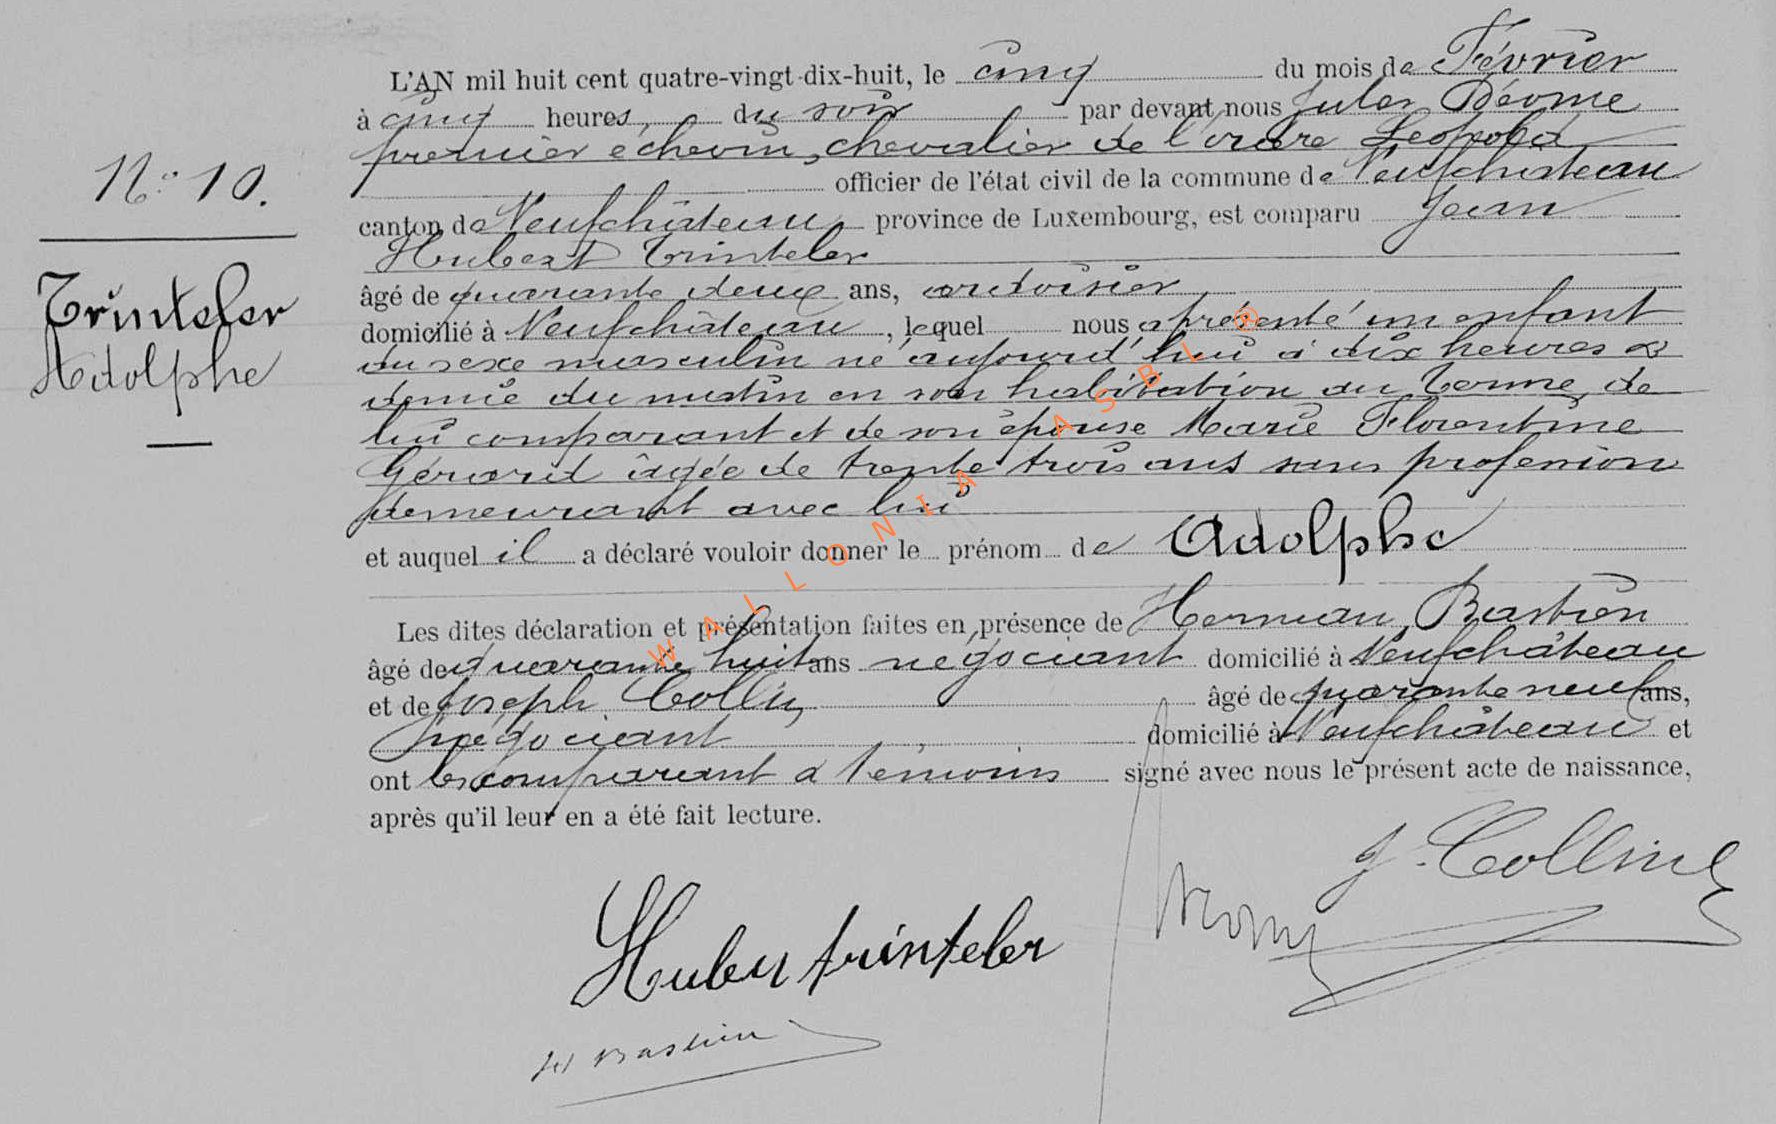 N° 10.
Trinteler
Adolphe
L'AN mil huit cent quatre-vingt-dix-huit, le cinq du mois de Février
à cinq heures, du soir par devant nous Jules
premier échevin, chevalier de l'ordre Leopold
officier de l'état civil de la commune de Neufchateau
canton de Neufchâteau province de Luxembourg, est comparu Jean
Hubert Trinteler
âgé de quarante deux ans, ardoisier
domicilié à Neufchâteau, lequel nous a présenté un enfant
du sexe masculin né aujourd'hui à dix heures &
demie du matin en son habitation au Terme, de
lui comparant et de son épouse Marie Florentine
Gérard âgée de trente trois ans sans profession
demeurant avec lui
et auquel il a déclaré vouloir donner le prénom de Adolphe
Les dites déclaration et présentation faites en présence de Herman Bastien
âgé de quarante huit ans négociant domicilié à Neufchâteau
et de Joseph Collin âgé de quarante neuf ans,
négociant domicilié à Neufchâteau et
ont les comparant & témoins signé avec nous le présent acte de naissance,
après qu'il leur en a été fait lecture.
J. Collin
Hubert trinteler
H Bastien
WALLONIA ASBL ®